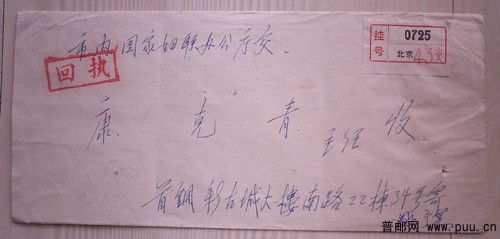 市内国家妇联办公厅交、
挂号 0725
北京 43支
回执
康克青 主任 收
首钢新古城大楼南路22栋34号寄
普邮网 www.puu.cn